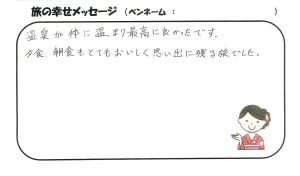 旅の幸せメッセージ (ペンネーム : )
温泉が体に温まり最高に良かったです.
夕食、朝食もとてもおいしく思い出に残る旅でした。